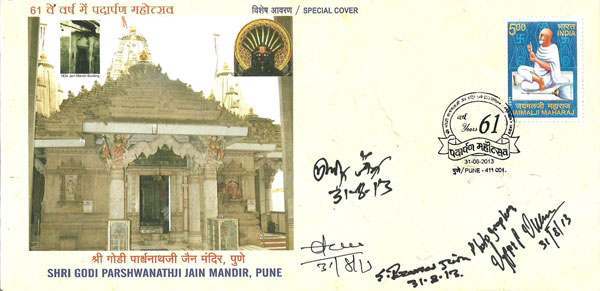 61 वें वर्ष में पदार्पण महोत्सव
विशेष आवरण / SPECIAL COVER
1834 Jain Mandir Building
5.00 भारत
INDIA
जयमलजी महाराज
JAIMALJI MAHARAJ
वर्ष
Years 61
पदार्पण महोत्सव
31-08-2013
पुणे/PUNE - 411 001.
31-8-13
31/8/13
31-8-13.
31/8/13
श्री गोडी पार्श्वनाथजी जैन मंदिर, पुणे
SHRI GODI PARSHWANATHJI JAIN MANDIR, PUNE